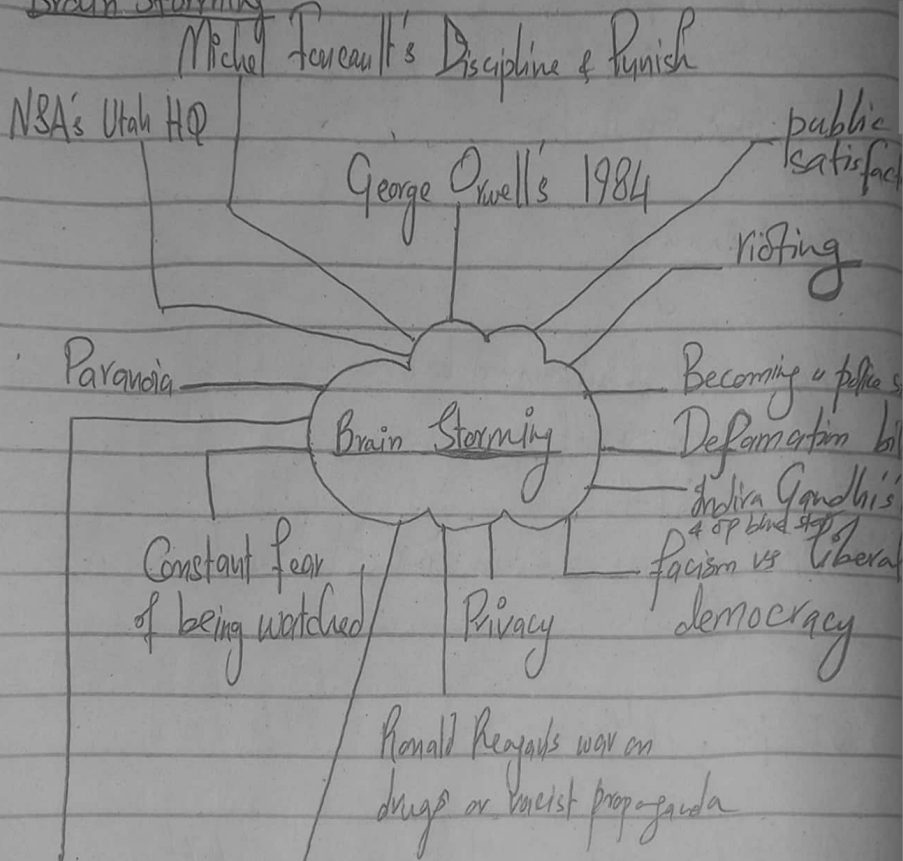 Brain Storming
Michel Foucault's Discipline & Punish
NSA's Utah HQ
George Orwell's 1984
public
satisfac
rioting
Paranoia
Becoming a police s
Brain Storming
Defamation bil
Indira Gandhi's
& op blue star
facism vs liberal
democracy
Constant fear
of being watched
Privacy
Ronald Reagan's war on
drugs or racist propaganda